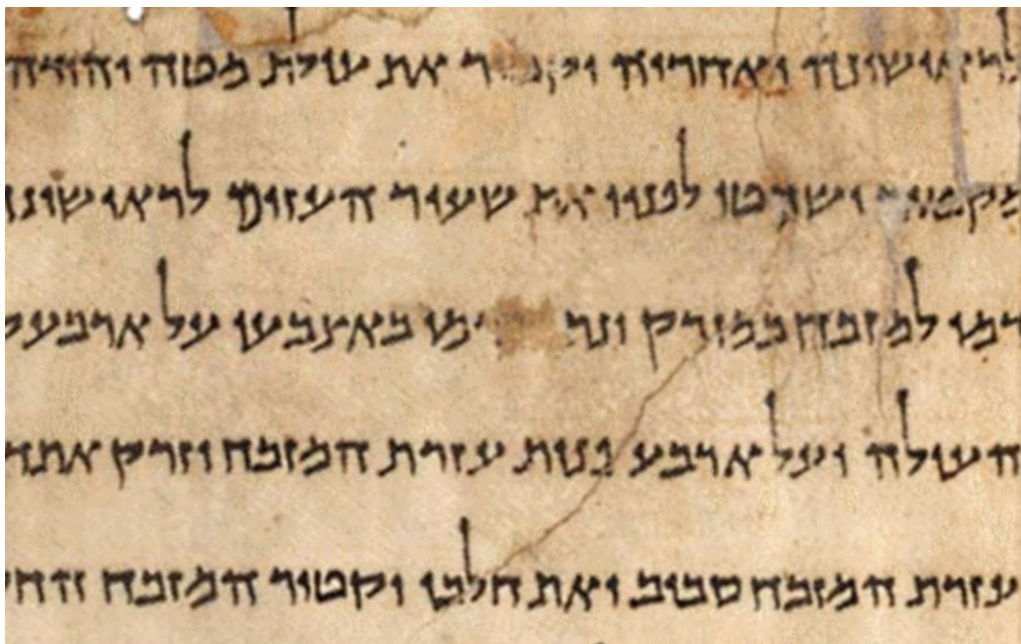 לראישונה ואחריה יקטיר את עולת מטה יהודה
מקטיר ישחטו לפניו את שעיר העזים לראישונ
דמו למזבח במזרק ונתן באצבעו על ארבע
העולה ועל ארבע פנות עזרת המזבח וזרק את ד
עזרת המזבח סביב ואת חלבו יקטיר המזבח